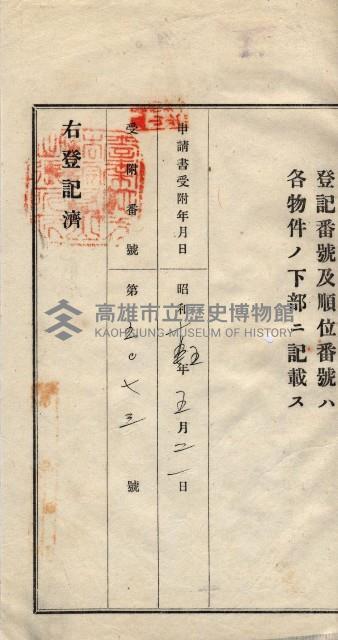 登記番號及順位番號ハ
各物件ノ下部ニ記載ス
申請書受附年月日
昭和十五年五月二一日
受附番號
第五〇七三號
右登記濟
高雄市立歷史博物館
KAOHSIUNG MUSEUM OF HISTORY